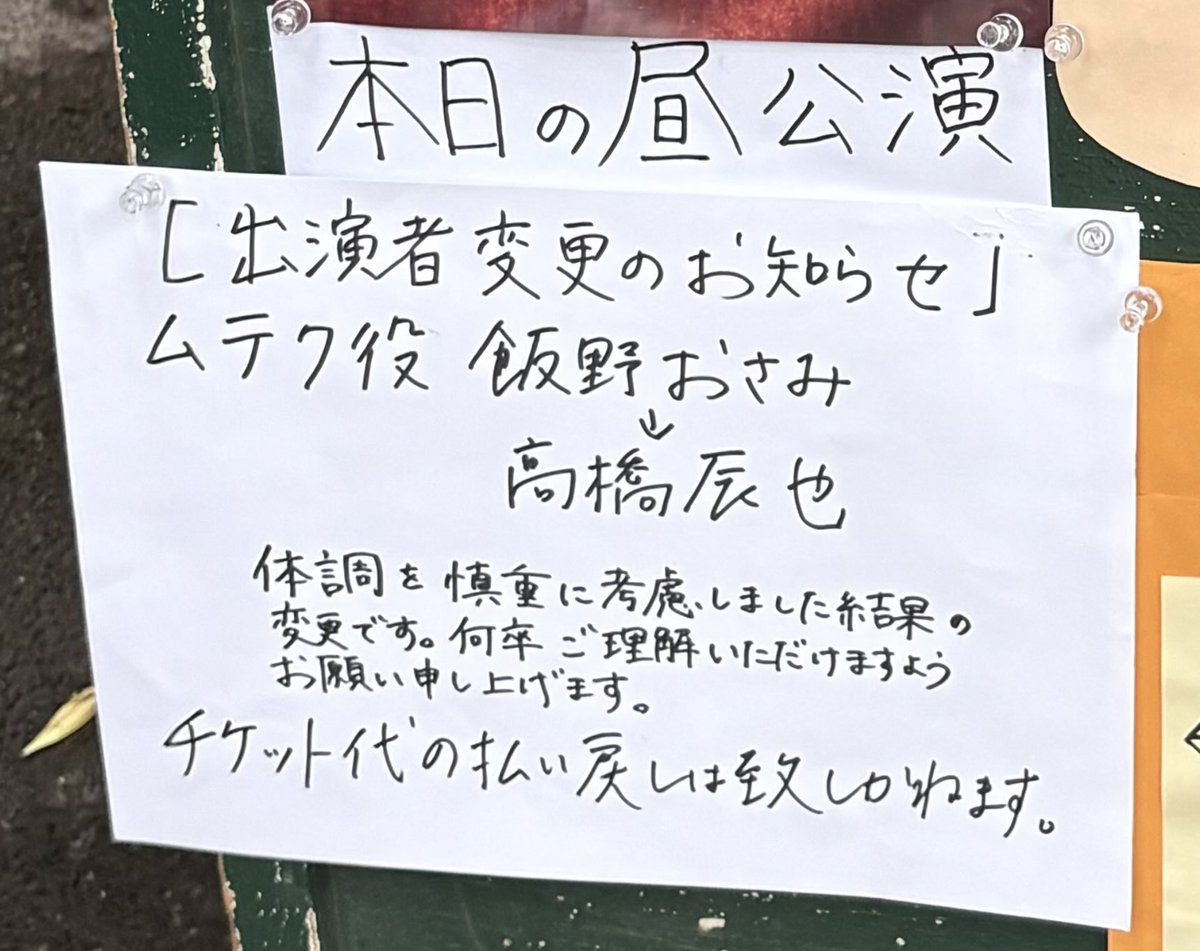 本日の昼公演
「出演者変更のお知らせ」
ムテク役 飯野おさみ
↓
高橋辰也
体調を慎重に考慮しました結果の
変更です。何卒ご理解いただけますよう
お願い申し上げます。
チケット代の払い戻しは致しかねます。